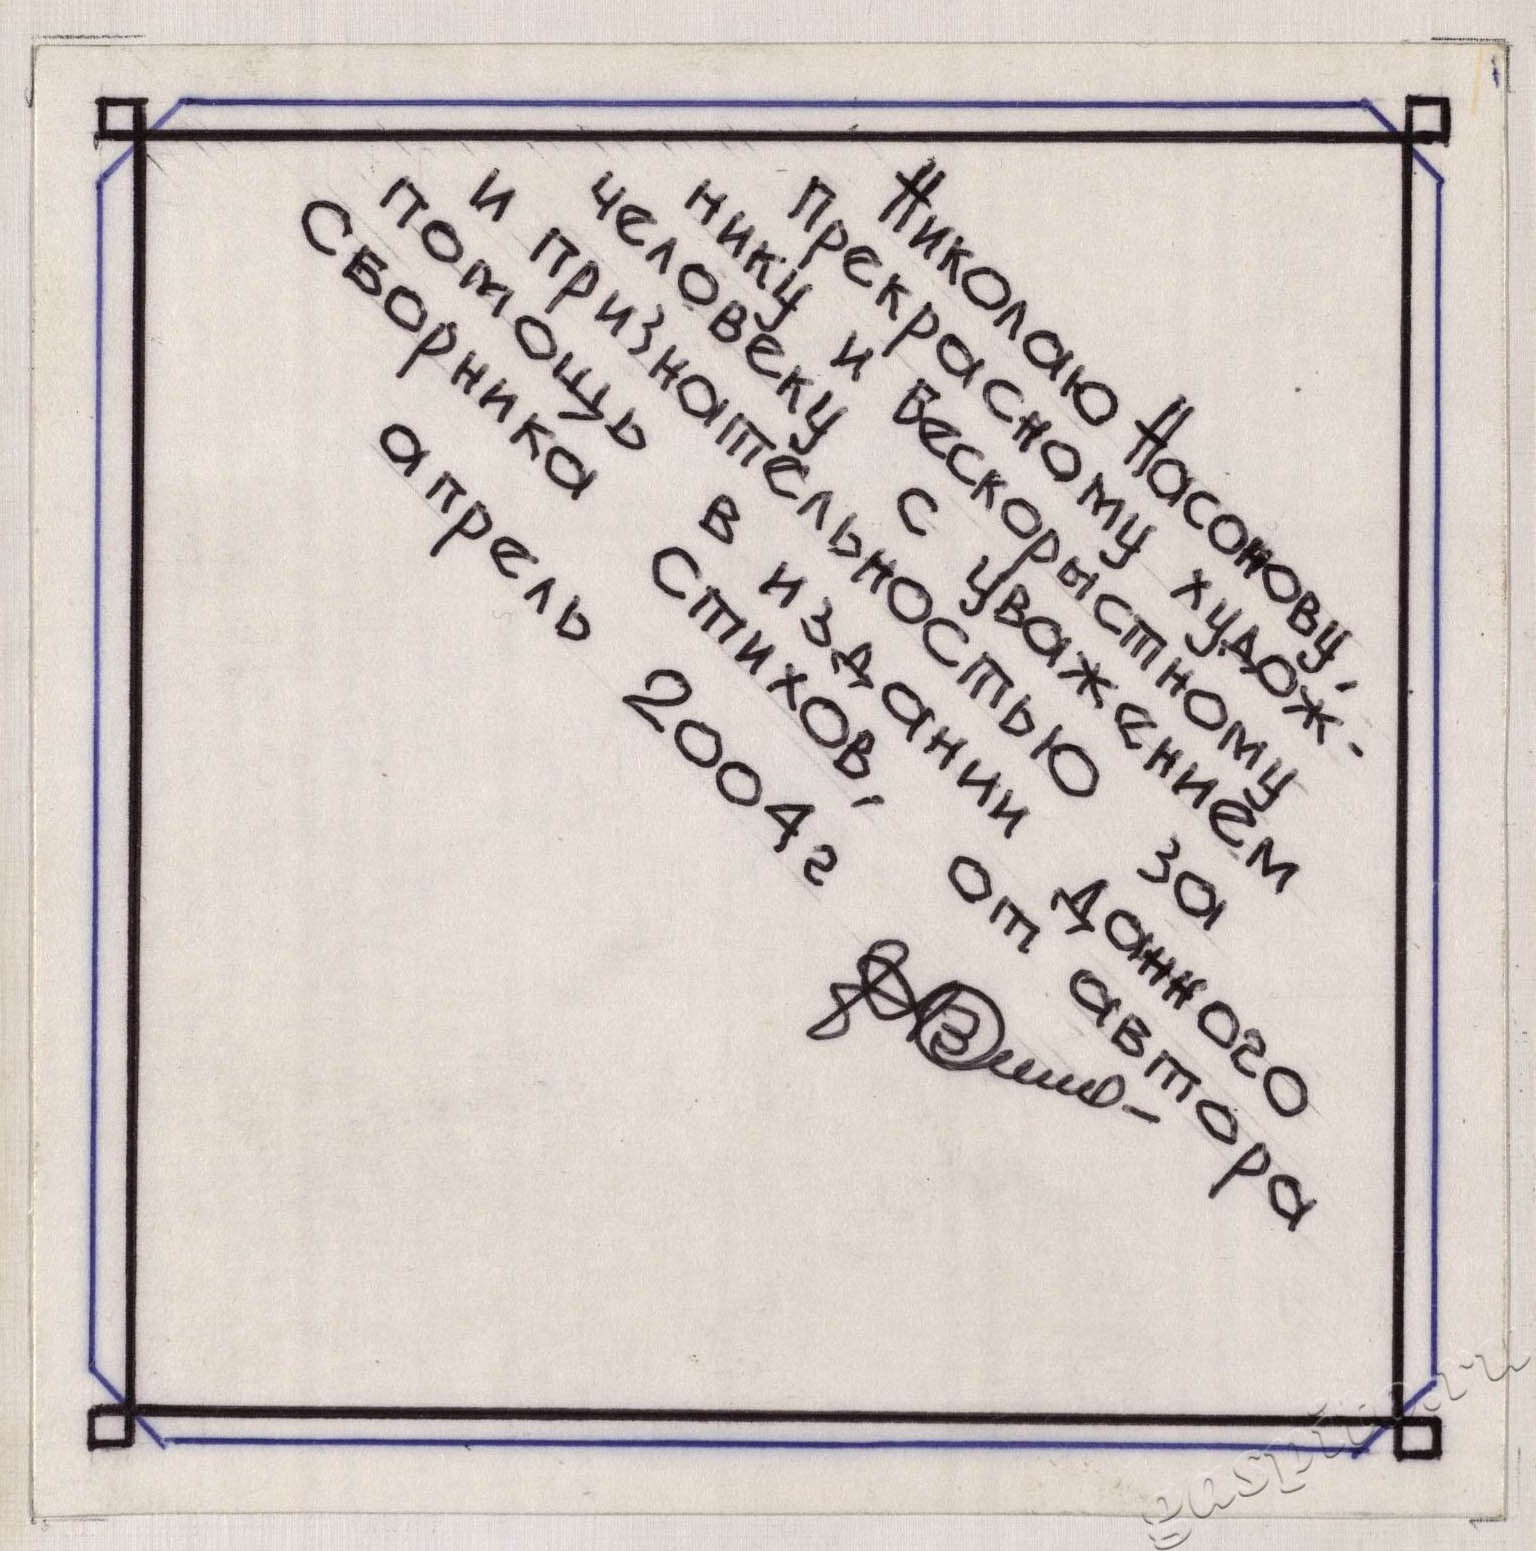 Николаю Насонову,
прекрасному худож-
нику и бескорыстному
человеку с уважением
и признательностью за
помощь в издании данного
сборника стихов, от автора
апрель 2004г